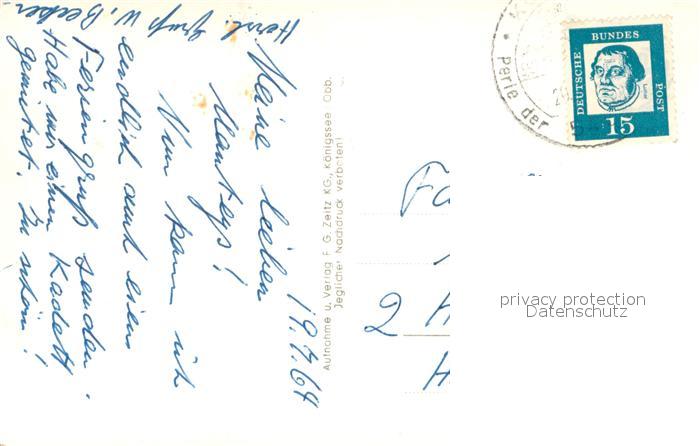 19.7.64
Meine lieben
Manteys!
Nun kann ich
endlich auch einen
Feriengruß senden.
Habe mir einen Kadett
gemietet. Zu schön!
Herzl. Gruß W. Becker
Aufnahme u. Verlag F. G. Zeitz KG., Königssee Obb.
Jegliche Nachdruck verboten!
DEUTSCHE
BUNDES
POST
Luther
15
Perle der
2 H
H
privacy protection
Datenschutz